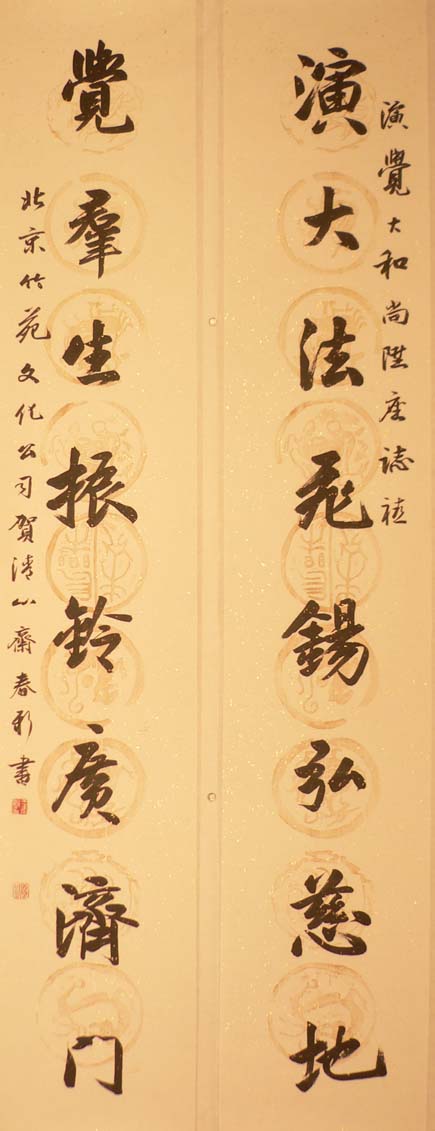 演覺大和尚陞座誌禧
演大法飛錫弘慈地
覺羣生振鈴廣濟門
北京竹苑文化公司賀清心齋春書